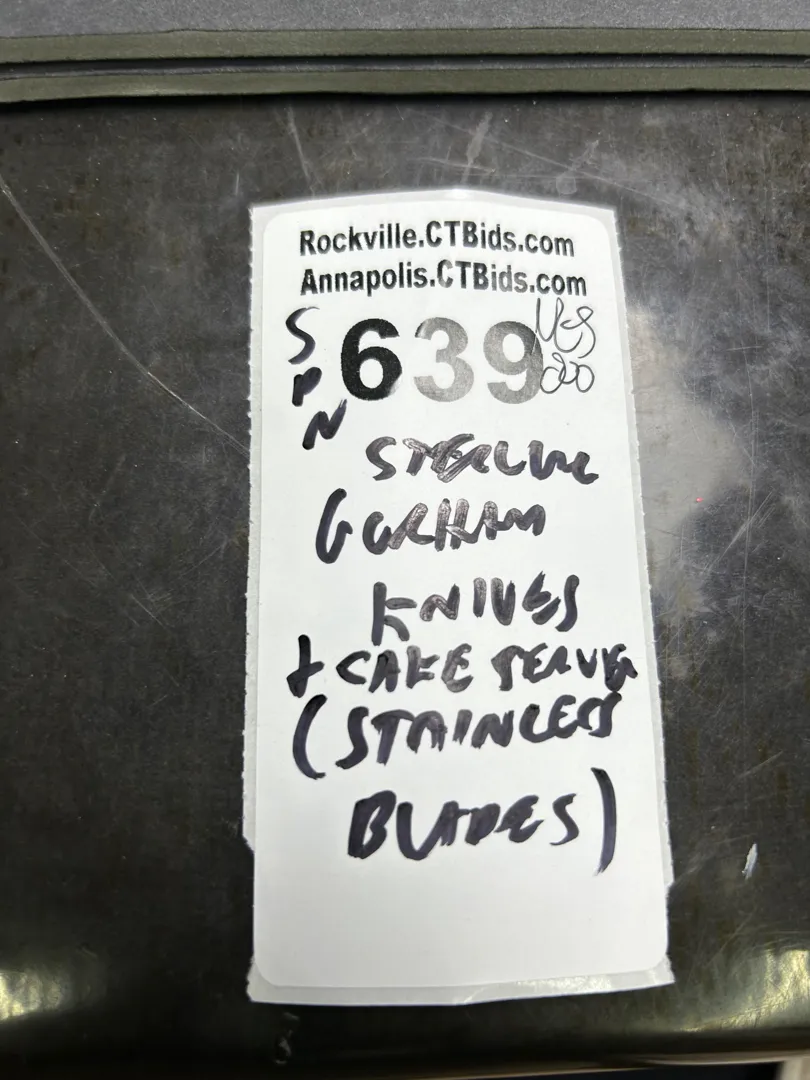 Rockville.CTBids.com
Annapolis.CTBids.com
S
P
N
639
STERLING
GORHAM
KNIVES
+ CAKE SERVER
(STAINLESS
BLADES)